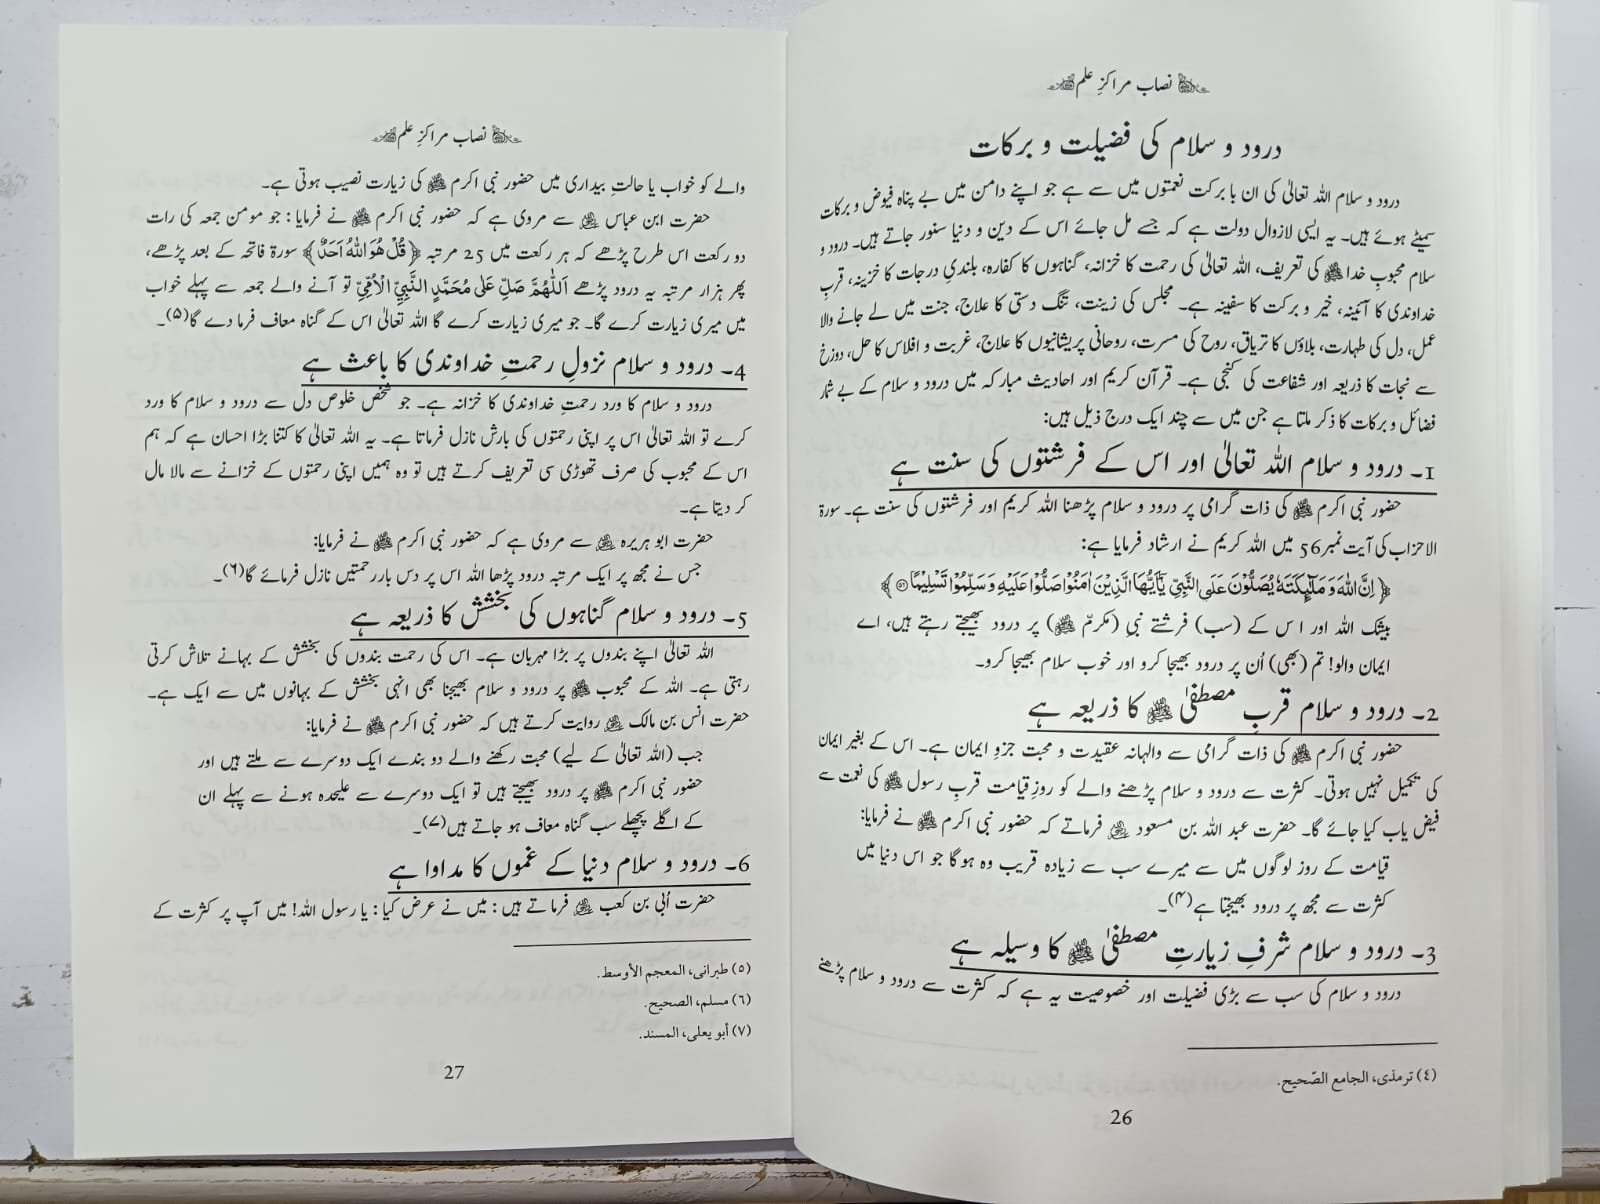 نصاب مراکزِ علم
درود و سلام کی فضیلت و برکات
درود و سلام اللہ تعالیٰ کی ان بابرکت نعمتوں میں سے ہے جو اپنے دامن میں بے پناہ فیوض و برکات
سمیٹے ہوئے ہیں۔ یہ ایسی لازوال دولت ہے کہ جسے مل جائے اس کے دین و دنیا سنور جاتے ہیں۔ درود و
سلام محبوبِ خدا ﷺ کی تعریف، اللہ تعالیٰ کی رحمت کا خزانہ، گناہوں کا کفارہ، بلندیِ درجات کا خزینہ، قربِ
خداوندی کا آئینہ، خیر و برکت کا سفینہ ہے۔ مجلس کی زینت، تنگ دستی کا علاج، جنت میں لے جانے والا
عمل، دل کی طہارت، بلاؤں کا تریاق، روح کی مسرت، روحانی پریشانیوں کا علاج، غربت و افلاس کا حل، دوزخ
سے نجات کا ذریعہ اور شفاعت کی کنجی ہے۔ قرآن کریم اور احادیث مبارکہ میں درود و سلام کے بے شمار
فضائل و برکات کا ذکر ملتا ہے جن میں سے چند ایک درج ذیل ہیں:
1۔ درود و سلام اللہ تعالیٰ اور اس کے فرشتوں کی سنت ہے
حضور نبی اکرم ﷺ کی ذات گرامی پر درود و سلام پڑھنا اللہ کریم اور فرشتوں کی سنت ہے۔ سورۃ
الاحزاب کی آیت نمبر 56 میں اللہ کریم نے ارشاد فرمایا ہے:
﴿اِنَّ اللّٰهَ وَمَلٰٓىِٕكَتَهٗ يُصَلُّوْنَ عَلَى النَّبِيِّ يٰٓاَيُّهَا الَّذِيْنَ اٰمَنُوْا صَلُّوْا عَلَيْهِ وَسَلِّمُوْا تَسْلِيْمًا ۝٥٦﴾
بیشک اللہ اور اس کے (سب) فرشتے نبیِ (مکرمّ ﷺ) پر درود بھیجتے رہتے ہیں، اے
ایمان والو! تم (بھی) اُن پر درود بھیجا کرو اور خوب سلام بھیجا کرو۔
2۔ درود و سلام قربِ مصطفیٰ ﷺ کا ذریعہ ہے
حضور نبی اکرم ﷺ کی ذات گرامی سے والہانہ عقیدت و محبت جزوِ ایمان ہے۔ اس کے بغیر ایمان
کی تکمیل نہیں ہوتی۔ کثرت سے درود و سلام پڑھنے والے کو روزِ قیامت قربِ رسول ﷺ کی نعمت سے
فیض یاب کیا جائے گا۔ حضرت عبد اللہ بن مسعود ؓ فرماتے کہ حضور نبی اکرم ﷺ نے فرمایا:
قیامت کے روز لوگوں میں سے میرے سب سے زیادہ قریب وہ ہوگا جو اس دنیا میں
کثرت سے مجھ پر درود بھیجتا ہے(۴)۔
3۔ درود و سلام شرفِ زیارتِ مصطفیٰ ﷺ کا وسیلہ ہے
درود و سلام کی سب سے بڑی فضیلت اور خصوصیت یہ ہے کہ کثرت سے درود و سلام پڑھنے
(٤) ترمذی، الجامع الصّحیح.
26
نصاب مراکزِ علم
والے کو خواب یا حالتِ بیداری میں حضور نبی اکرم ﷺ کی زیارت نصیب ہوتی ہے۔
حضرت ابن عباس ؓ سے مروی ہے کہ حضور نبی اکرم ﷺ نے فرمایا: جو مومن جمعہ کی رات
دو رکعت اس طرح پڑھے کہ ہر رکعت میں 25 مرتبہ ﴿قُلْ هُوَ اللّٰهُ اَحَدٌ﴾ سورۃ فاتحہ کے بعد پڑھے،
پھر ہزار مرتبہ یہ درود پڑھے اَللّٰهُمَّ صَلِّ عَلٰى مُحَمَّدٍ النَّبِيِّ الْاُمِّيِّ تو آنے والے جمعہ سے پہلے خواب
میں میری زیارت کرے گا۔ جو میری زیارت کرے گا اللہ تعالیٰ اس کے گناہ معاف فرما دے گا(۵)۔
4۔ درود و سلام نزولِ رحمتِ خداوندی کا باعث ہے
درود و سلام کا ورد رحمتِ خداوندی کا خزانہ ہے۔ جو شخص خلوص دل سے درود و سلام کا ورد
کرے تو اللہ تعالیٰ اس پر اپنی رحمتوں کی بارش نازل فرماتا ہے۔ یہ اللہ تعالیٰ کا کتنا بڑا احسان ہے کہ ہم
اس کے محبوب کی صرف تھوڑی سی تعریف کرتے ہیں تو وہ ہمیں اپنی رحمتوں کے خزانے سے مالا مال
کر دیتا ہے۔
حضرت ابوہریرہ ؓ سے مروی ہے کہ حضور نبی اکرم ﷺ نے فرمایا:
جس نے مجھ پر ایک مرتبہ درود پڑھا اللہ اس پر دس بار رحمتیں نازل فرمائے گا(۶)۔
5۔ درود و سلام گناہوں کی بخشش کا ذریعہ ہے
اللہ تعالیٰ اپنے بندوں پر بڑا مہربان ہے۔ اس کی رحمت بندوں کی بخشش کے بہانے تلاش کرتی
رہتی ہے۔ اللہ کے محبوب ﷺ پر درود و سلام بھیجنا بھی انہی بخشش کے بہانوں میں سے ایک ہے۔
حضرت انس بن مالک ؓ روایت کرتے ہیں کہ حضور نبی اکرم ﷺ نے فرمایا:
جب (اللہ تعالیٰ کے لیے) محبت رکھنے والے دو بندے ایک دوسرے سے ملتے ہیں اور
حضور نبی اکرم ﷺ پر درود بھیجتے ہیں تو ایک دوسرے سے علیحدہ ہونے سے پہلے ان
کے اگلے پچھلے سب گناہ معاف ہو جاتے ہیں(۷)۔
6۔ درود و سلام دنیا کے غموں کا مداوا ہے
حضرت اُبی بن کعب ؓ فرماتے ہیں: میں نے عرض کیا: یا رسول اللہ! میں آپ پر کثرت کے
(٥) طبرانی، المعجم الأوسط.
(٦) مسلم، الصحیح.
(٧) أبو یعلی، المسند.
27